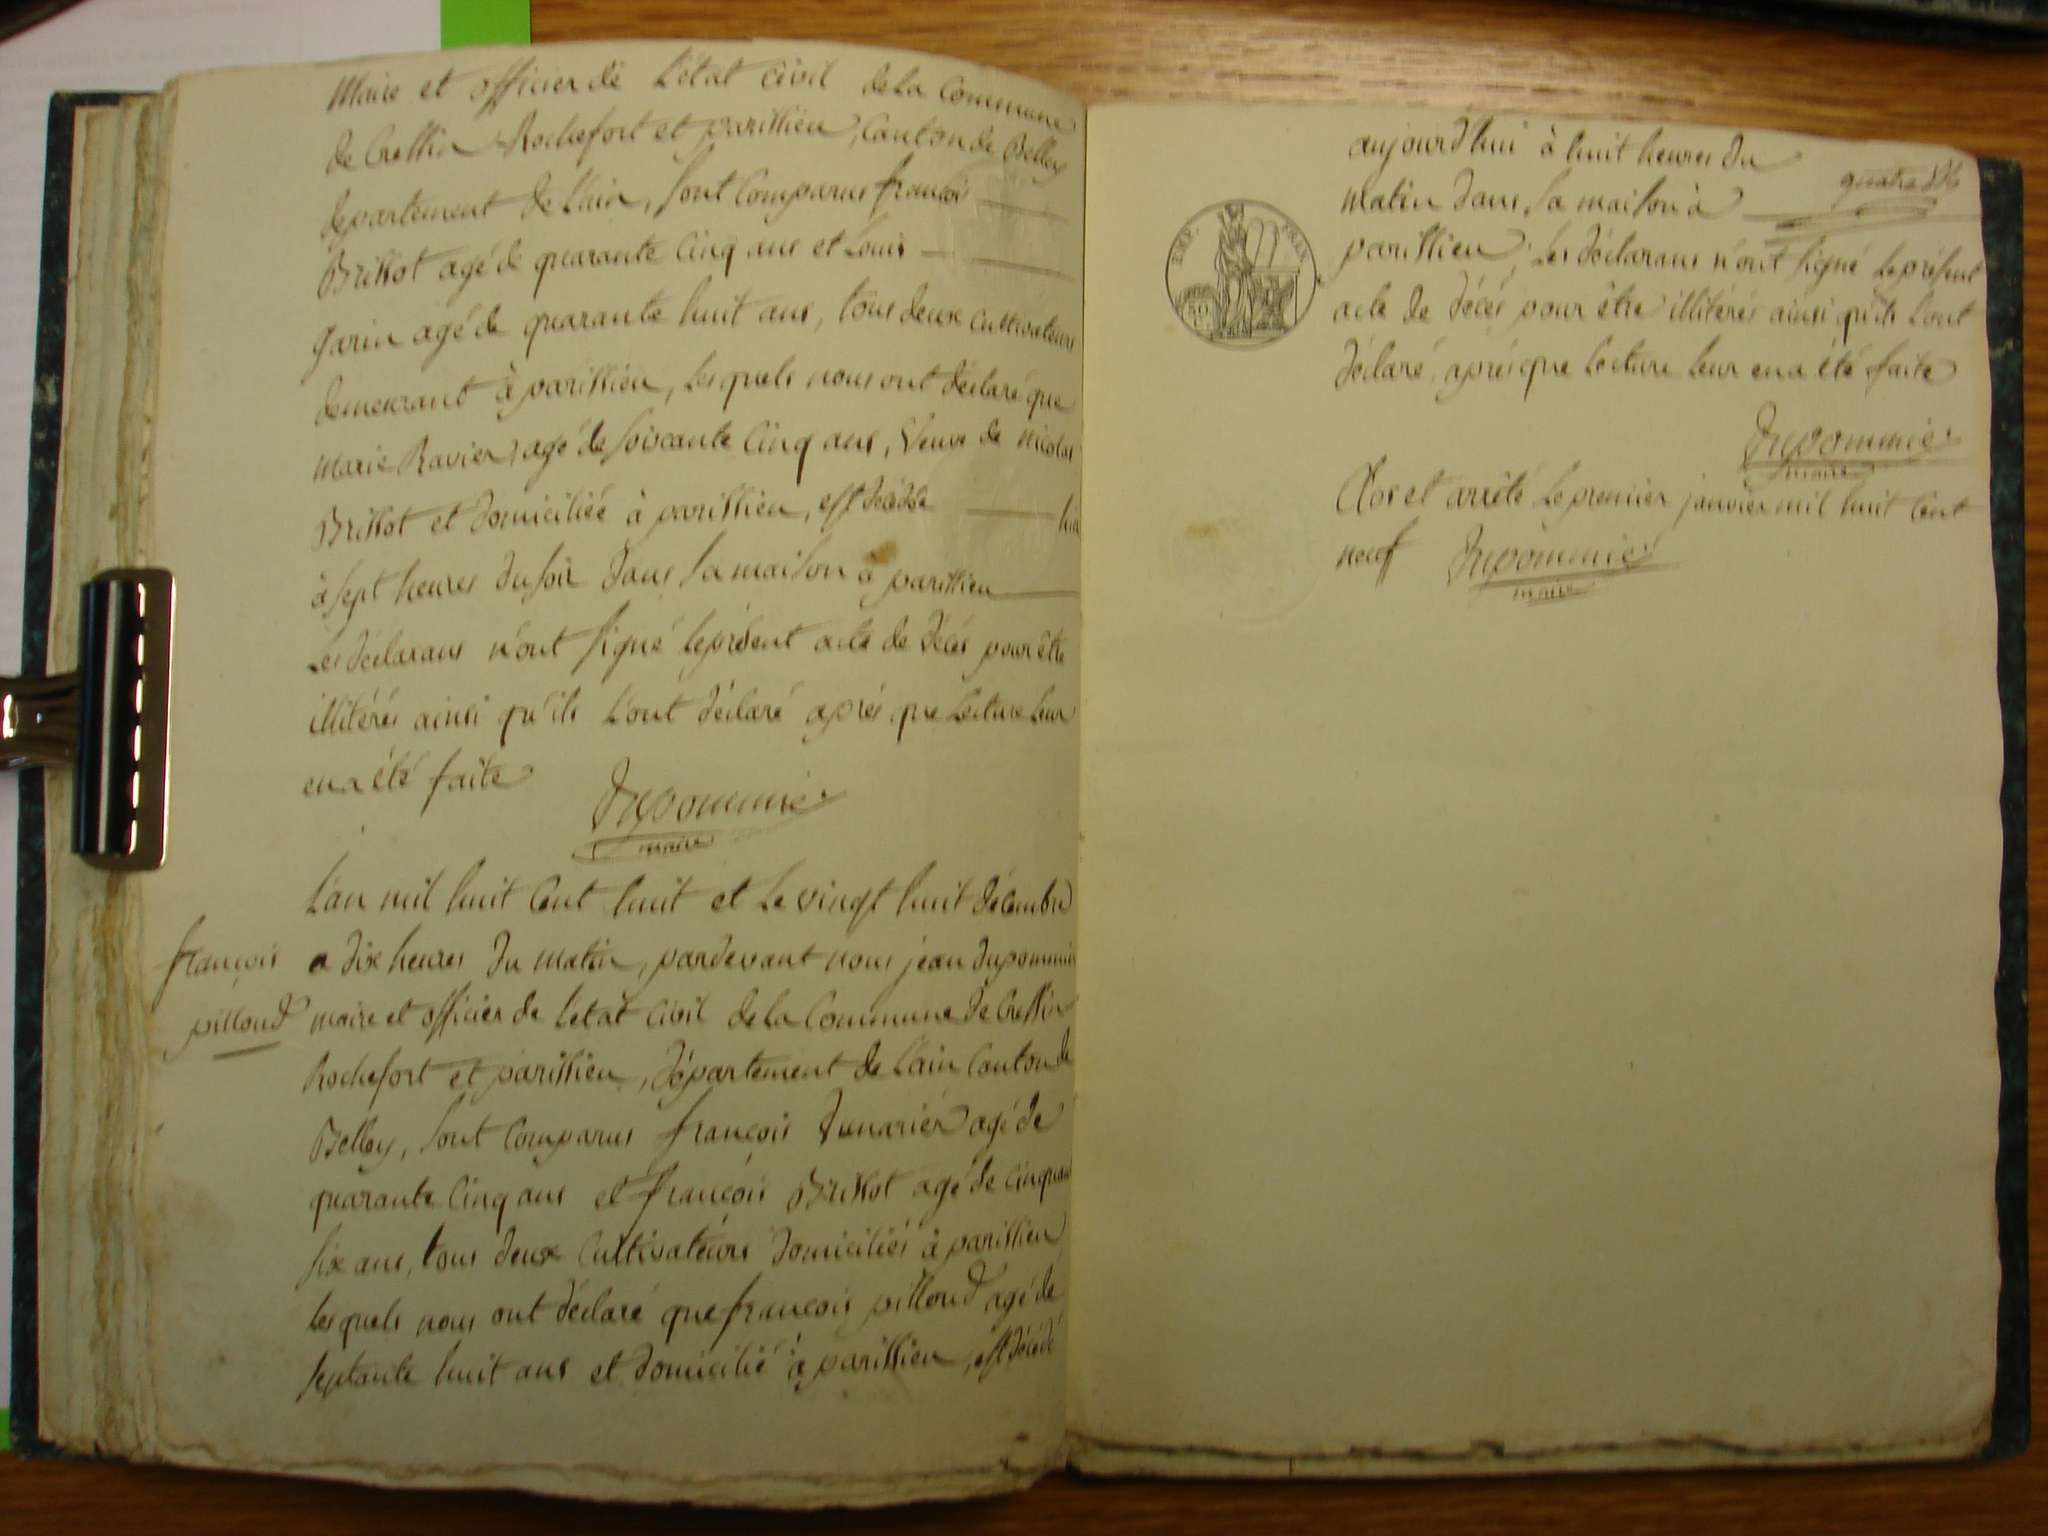 Maire et officier de l'état civil de la Commune
de Cressin Rochefort et parissieu, Canton de Belley
département de l'ain, sont Comparus françois
Brissot agé de quarante Cinq ans et Louis
Garin agé de quarante huit ans, tous deux Cultivateurs
demeurant à parissieu, lesquels nous ont déclaré que
Marie Ravier, agé de soixante Cinq ans, Veuve de nicolas
Brissot et domiciliée à parissieu, est décédée hier
à sept heures du soir dans sa maison à parissieu
Les déclarans n'ont signé le présent acte de décés pour être
illitérés ainsi qu'ils l'ont déclaré aprés que Lecture leur
en a été faite
Dupommié
maire
L'an mil huit Cent huit et le vingt huit décembre
françois
a dix heures du matin, pardevant nous jean dupommié
pilloud
maire et officier de l'etat Civil de la Commune de Cressin
Rochefort et parissieu, département de l'ain Canton de
Belley, sont Comparus françois agé de
quarante Cinq ans et françois Brissot agé de cinquante
six ans, tous deux Cultivateurs domiciliés à parissieu
lesquels nous ont déclaré que françois pilloud agé de
septante huit ans et domicilié à parissieu, est décédé
aujourd'hui à huit heures du
matin dans sa maison à
quatre
EMP. FRAN.
50
parissieu; les déclarans n'ont signé le présent
acte de décés pour être illitérés ainsi qu'ils l'ont
déclaré, aprés que lecture leur en a été faite
Dupommié
maire
Clos et arrêté le premier janvier mil huit Cent
neuf Dupommié
maire